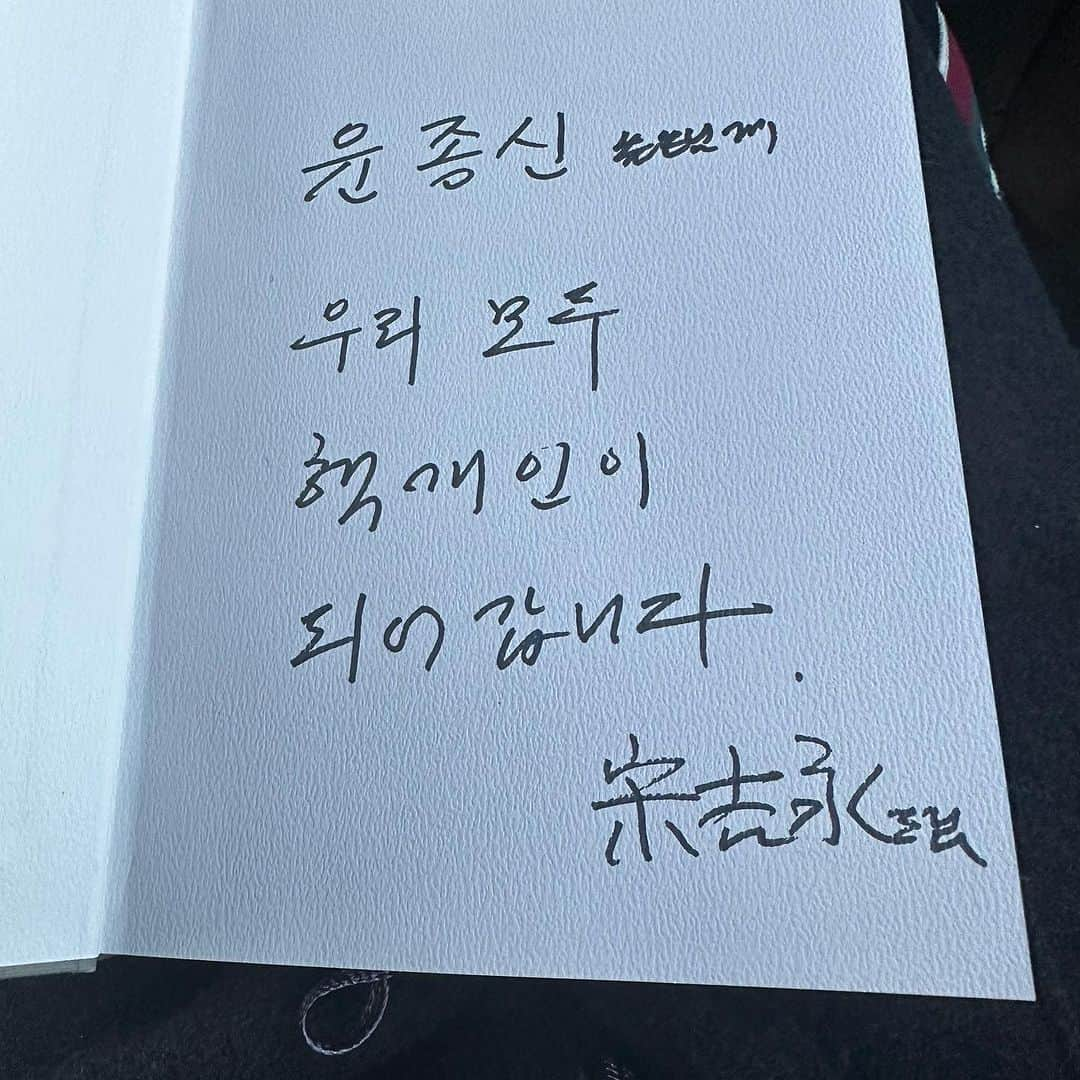 윤종신
우리 모두
핵개인이
되어 갑니다.
宋吉永 드림